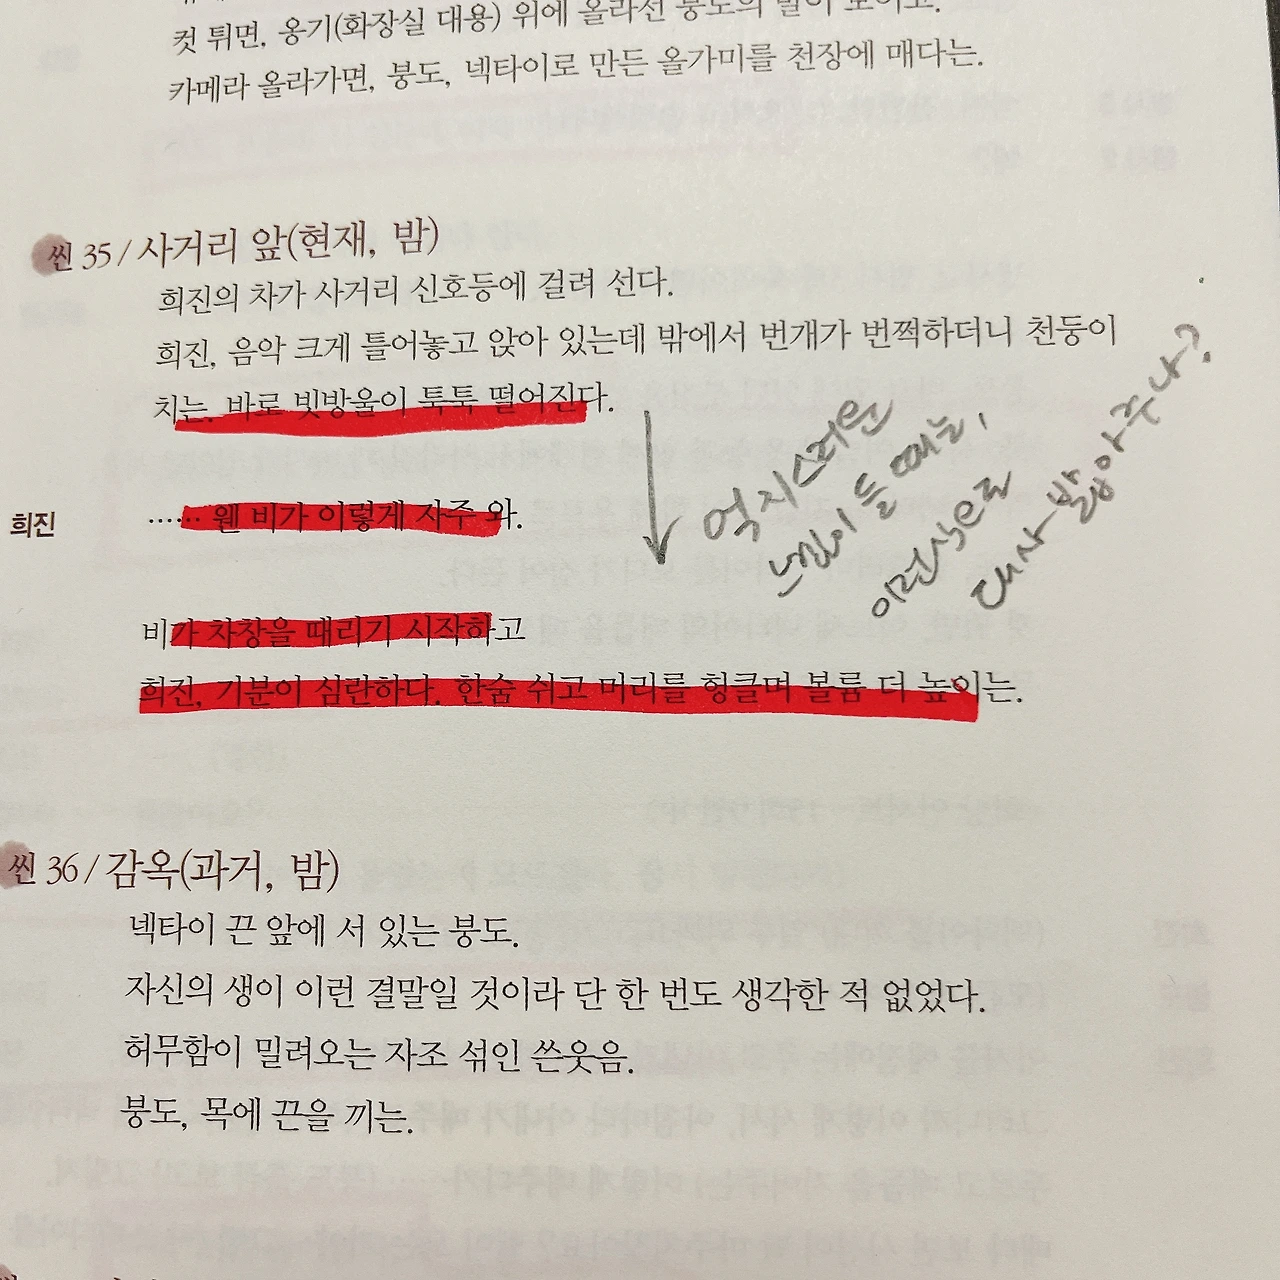 컷 튀면, 옹기(화장실 대용) 위에 올라선 붕도의 발이 보이고.
카메라 올라가면, 붕도, 넥타이로 만든 올가미를 천장에 매다는.
씬 35 / 사거리 앞(현재, 밤)
희진의 차가 사거리 신호등에 걸려 선다.
희진, 음악 크게 틀어놓고 앉아 있는데 밖에서 번개가 번쩍하더니 천둥이
치는. 바로 빗방울이 툭툭 떨어진다.
희진 …… 웬 비가 이렇게 자주 와.
억지스러운
느낌이 들 때는,
이런식으로
대사 밟아주나?
비가 차창을 때리기 시작하고
희진, 기분이 심란하다. 한숨 쉬고 머리를 헝클며 볼륨 더 높이는.
씬 36 / 감옥(과거, 밤)
넥타이 끈 앞에 서 있는 붕도.
자신의 생이 이런 결말일 것이라 단 한 번도 생각한 적 없었다.
허무함이 밀려오는 자조 섞인 쓴웃음.
붕도, 목에 끈을 끼는.